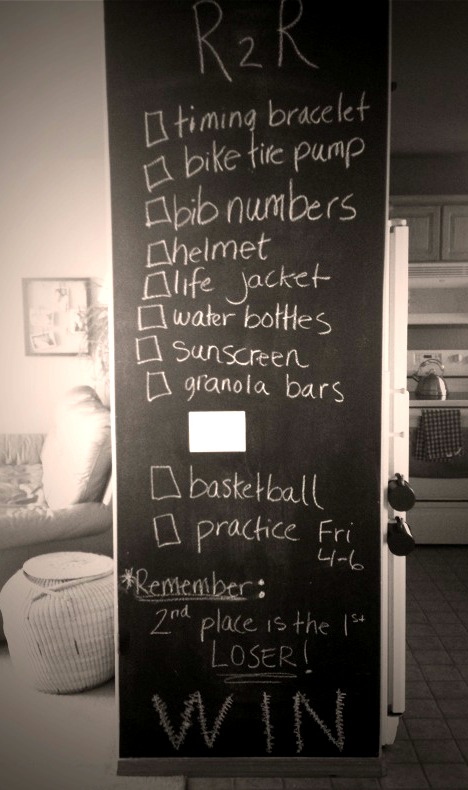 R2R
timing bracelet
bike tire pump
bib numbers
helmet
life jacket
water bottles
sunscreen
granola bars
basketball
practice Fri
4-6
*Remember:
2nd place is the 1st
LOSER!
WIN